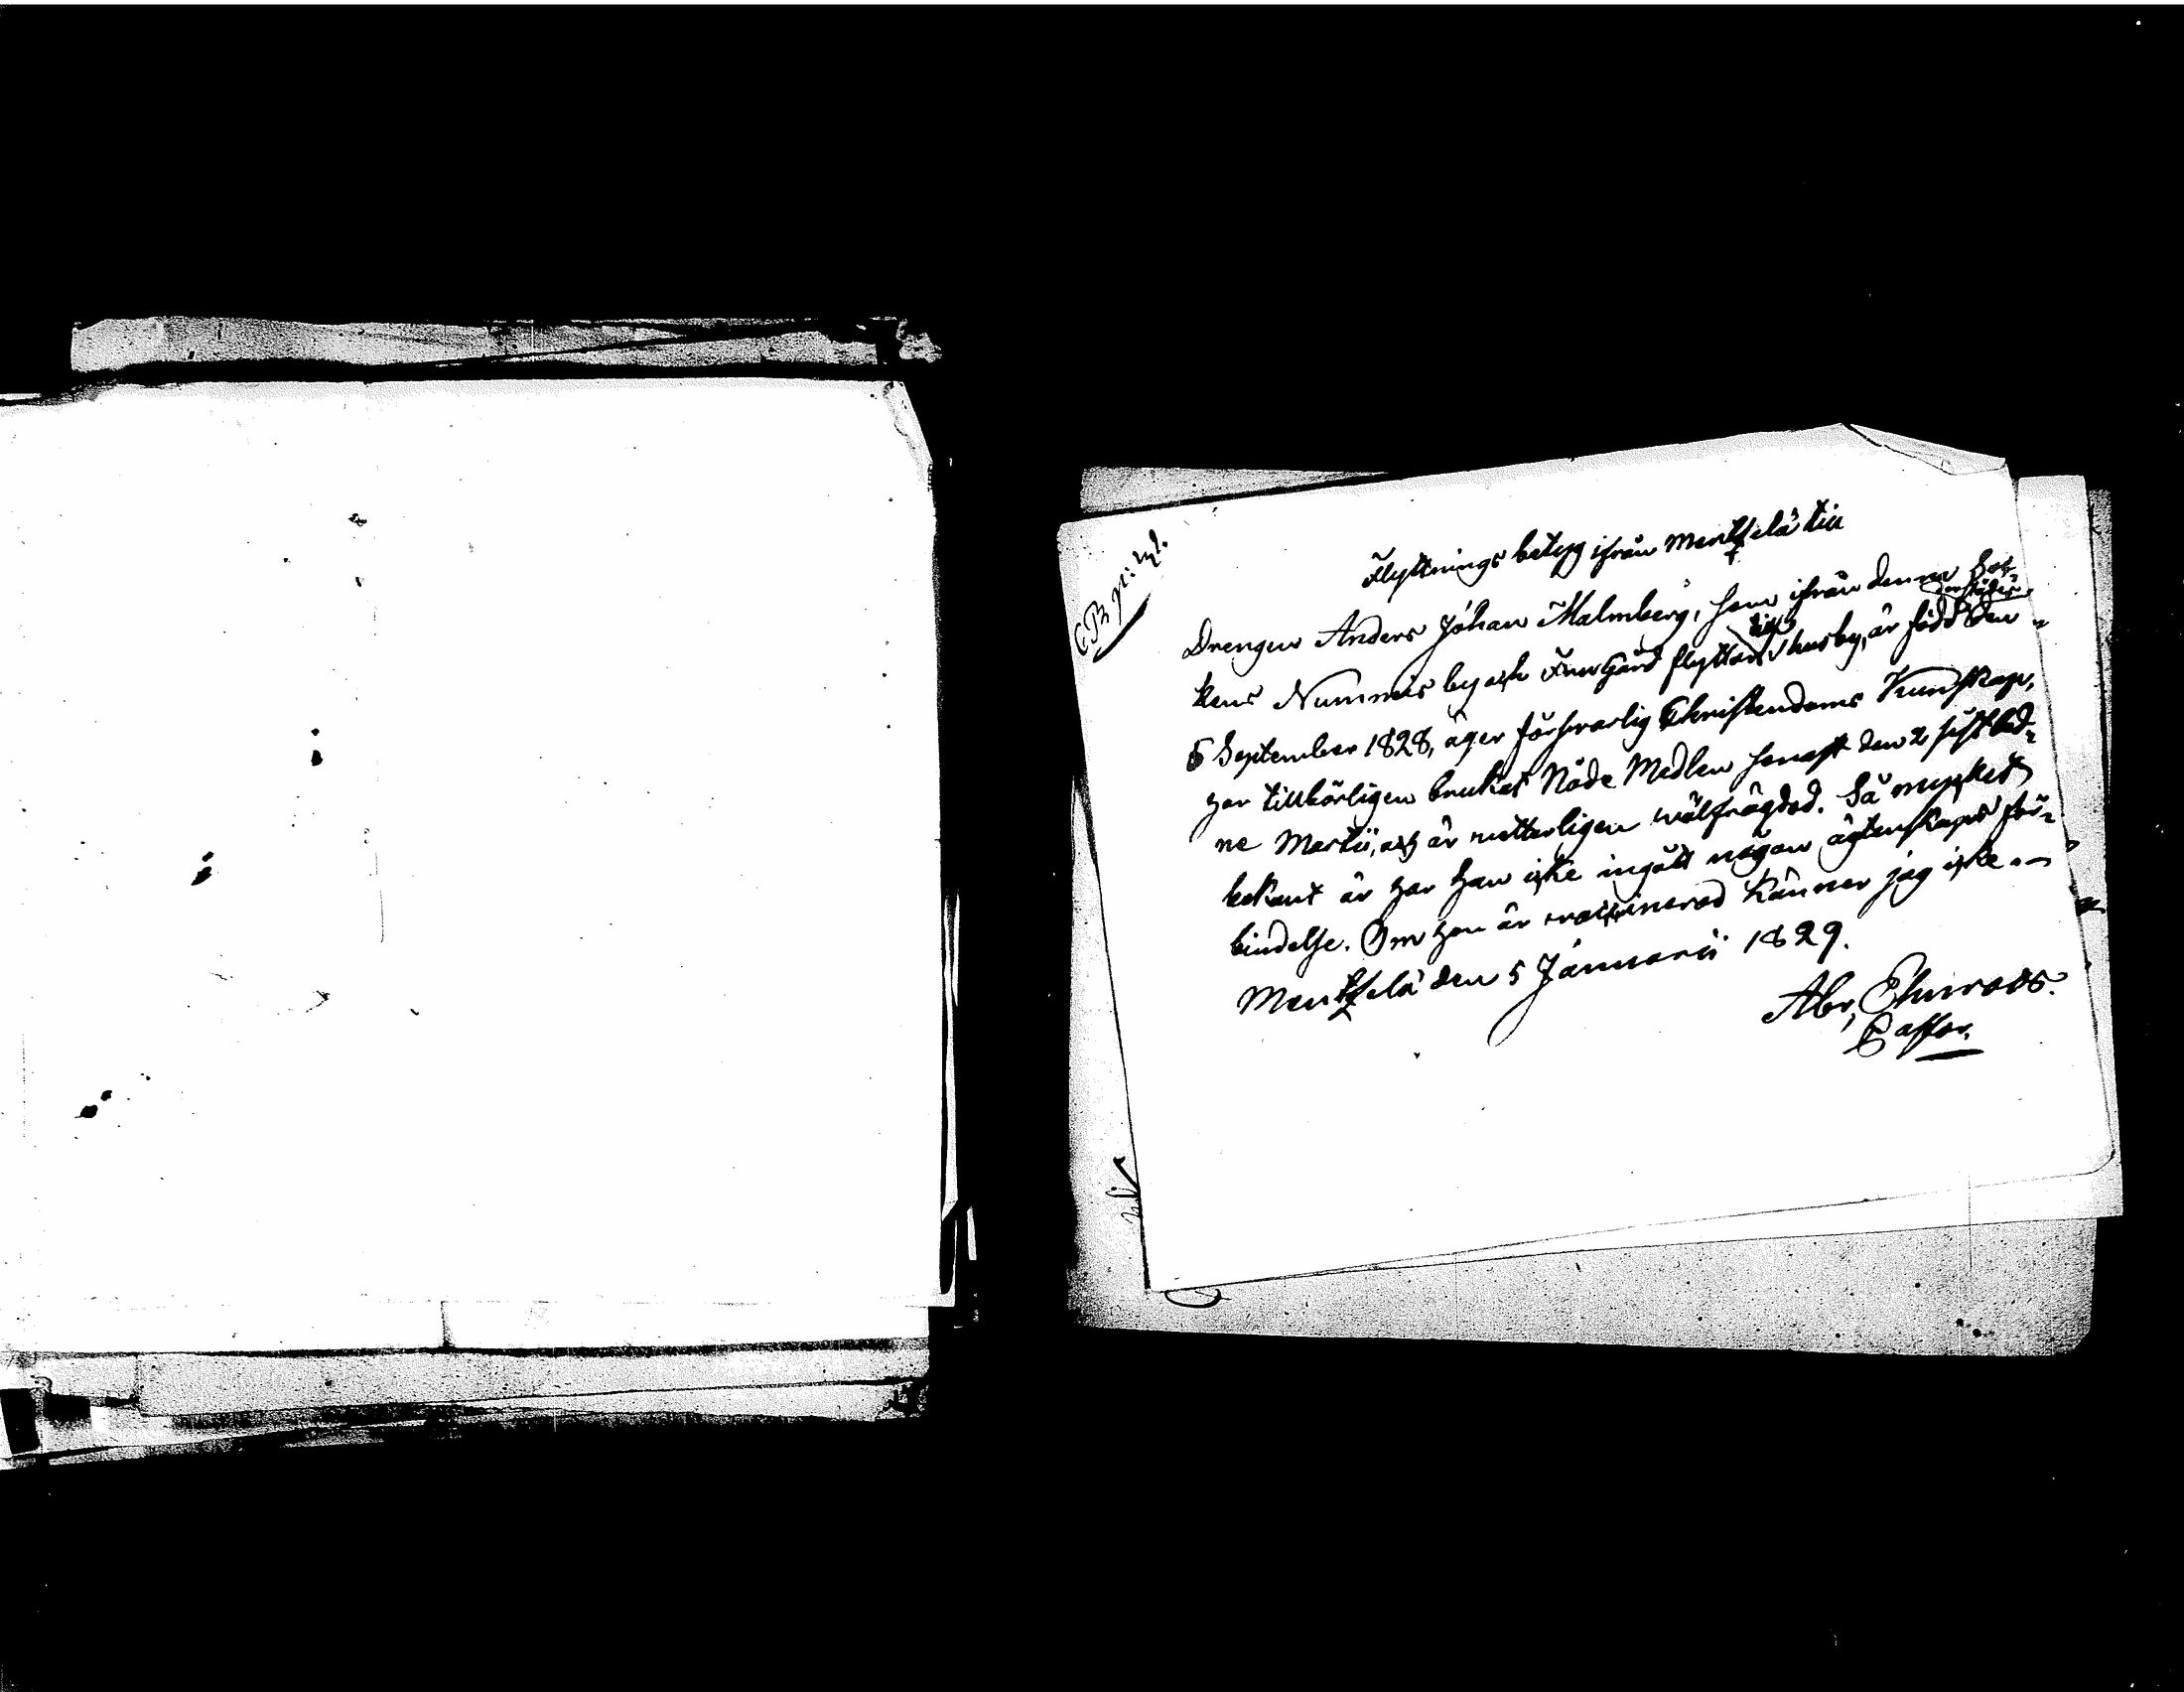 Flyttnings betyg ifrån Mentzelä till
Drengen Anders Johan Malmberg, som ifrån denna Soc-
kens Nummis by och Fnurgård flyttar till Husby, är född den
6 September 1828, äger försvarlig Christendoms Kunskap,
har tillbörligen brukat Nåde Medlen senast den 2 sistled-
ne Martii, och är mitterligen wälfrägdad. Så mycket
bekant är har han icke ingått någon ägtenskaps för-
bindelse. Om han är waccinerad känner jag icke.
Mentzelä den 5 Januarii 1829.
Abr, Elmroos.
Pastor.